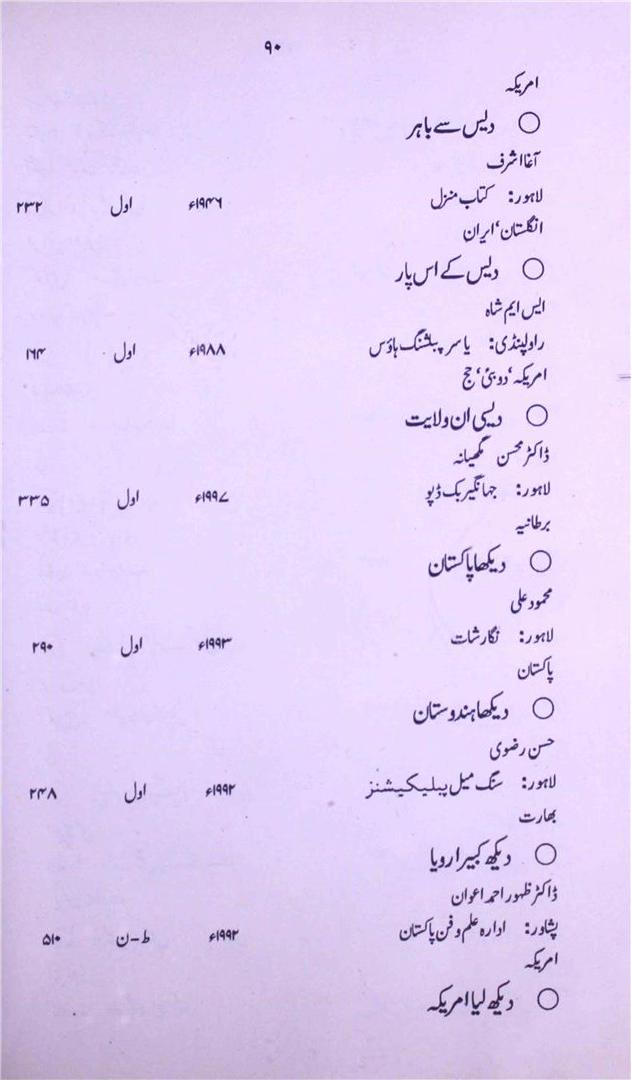 ۹۰
امریکہ
○ دیس سے باہر
آغا اشرف
لاہور: کتاب منزل ۱۹۴۶ء اول ۲۳۲
انگلستان‘ ایران
○ دیس کے اس پار
ایس ایم شاہ
راولپنڈی: یاسر پبلشنگ ہاؤس ۱۹۸۸ء اول ۱۶۴
امریکہ‘ دوبئی‘ حج
○ دیسی ان ولایت
ڈاکٹر محسن مگھیانہ
لاہور: جہانگیر بک ڈپو ۱۹۹۷ء اول ۳۳۵
برطانیہ
○ دیکھا پاکستان
محمود علی
لاہور: نگارشات ۱۹۹۳ء اول ۲۹۰
پاکستان
○ دیکھا ہندوستان
حسن رضوی
لاہور: سنگ میل پبلیکیشنز ۱۹۹۲ء اول ۲۴۸
بھارت
○ دیکھ کبیرا رویا
ڈاکٹر ظہور احمد اعوان
پشاور: ادارہ علم و فن پاکستان ۱۹۹۲ء ط-ن ۵۱۰
امریکہ
○ دیکھ لیا امریکہ